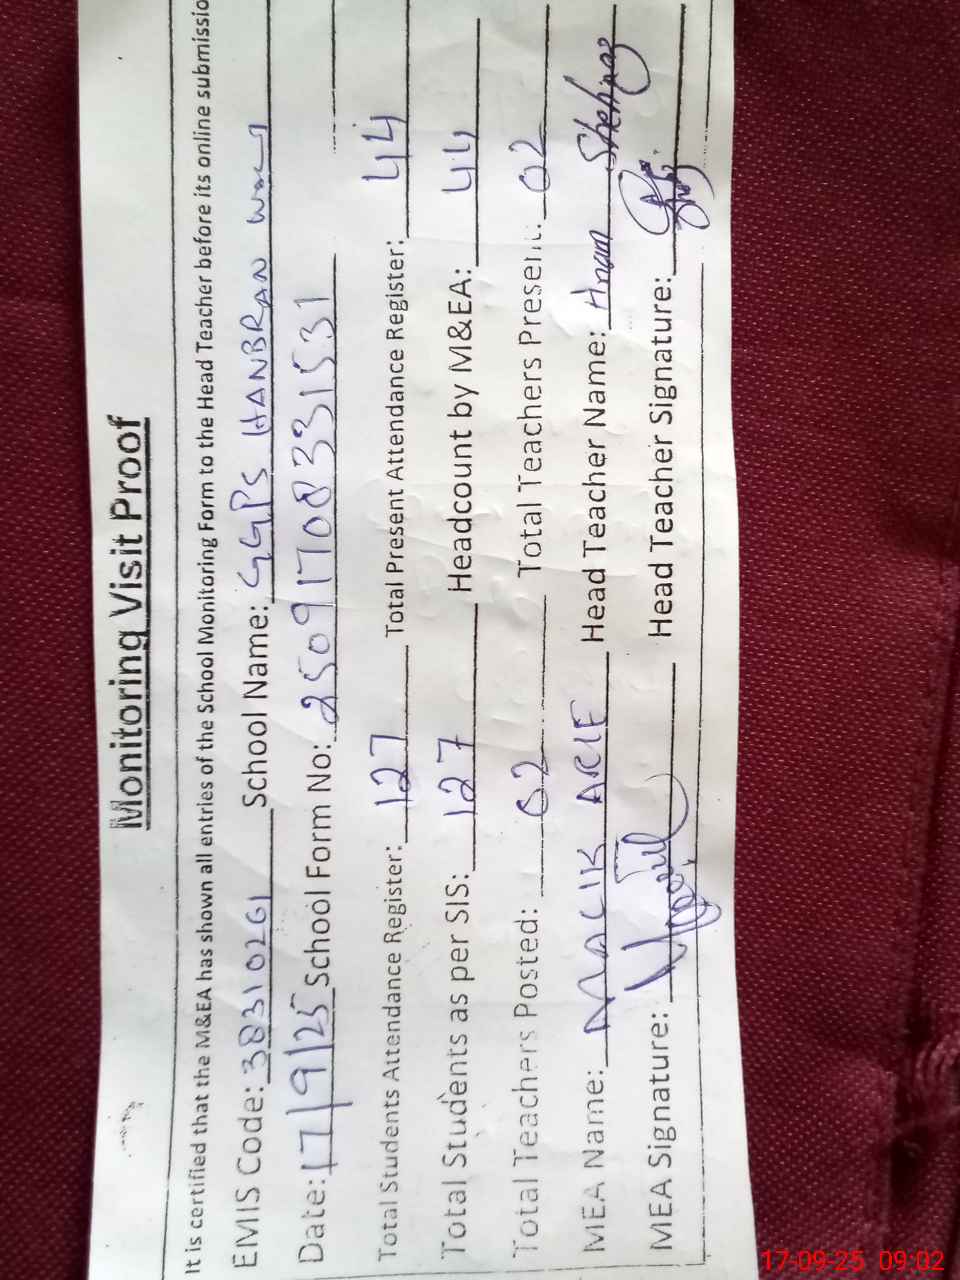 Monitoring Visit Proof
It is certified that the M&EA has shown all entries of the School Monitoring Form to the Head Teacher before its online submissio
EMIS Code: 38310261 School Name: GGPS HANBRAN
Date: 17/9/25 School Form No: 25091708331531
Total Students Attendance Register: 127 Total Present Attendance Register: 44
Total Students as per SIS: 127 Headcount by M&EA: 44
Total Teachers Posted: 02 Total Teachers Present: 02
MEA Name: MALIK ARIF Head Teacher Name: Anam Shehnaz
MEA Signature: Head Teacher Signature:
17-09-25 09:02